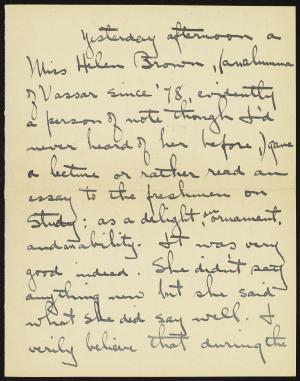 Yesterday afternoon a
Miss Helen Brown, (an alumna
of Vassar since '78, evidently
a person of note though I'd
never heard of her before,) gave
a lecture or rather read an
essay to the freshmen on
Study; as a delight, an ornament,
and an ability. It was very
good indeed. She didn't say
anything new but she said
what she did say well. I
verily believe that during the